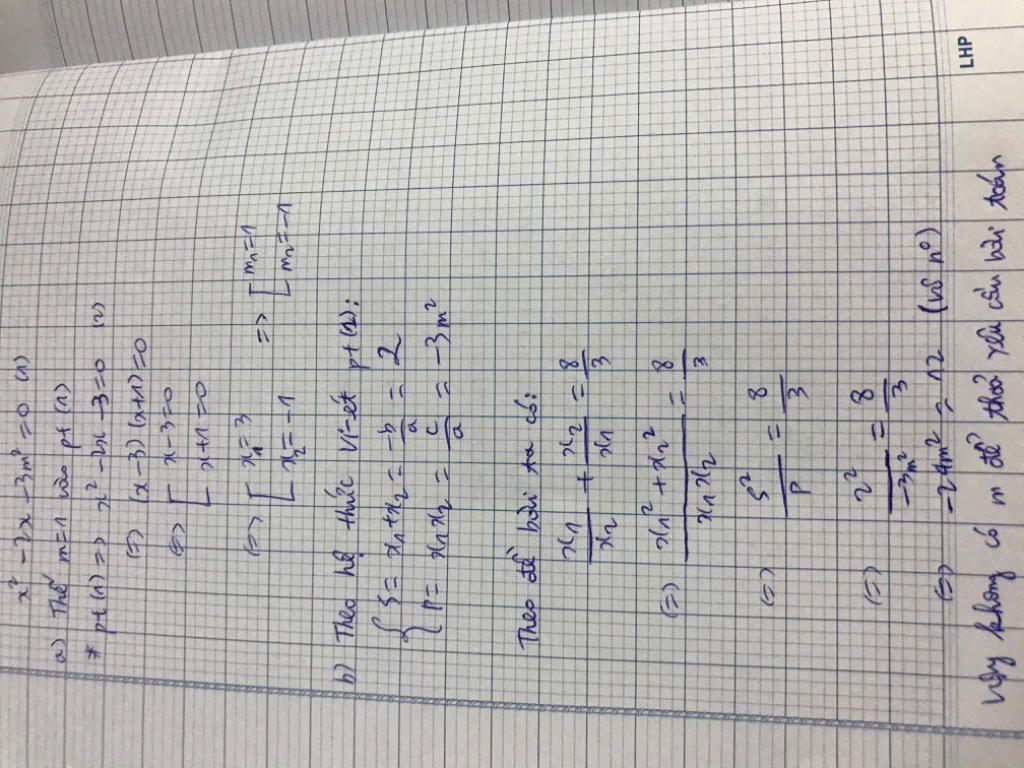 x² - 2x - 3m² = 0 (1)
a) Thế m = 1 vào pt (1)
* pt (1) => x² - 2x - 3 = 0 (2)
(=) (x - 3)(x + 1) = 0
(=) [ x - 3 = 0
[ x + 1 = 0
(=) [ x₁ = 3 => [ m₁ = 1
[ x₂ = -1 [ m₂ = -1
b) Theo hệ thức Vi-ét pt (1):
{ S = x₁ + x₂ = -b/a = 2
{ P = x₁x₂ = c/a = -3m²
Theo đề bài ta có:
x₁/x₂ + x₂/x₁ = 8/3
(=) (x₁² + x₂²)/(x₁x₂) = 8/3
(=) S²/P = 8/3
(=) 2²/(-3m²) = 8/3
(=) -24m² = 12 (vô n°)
Vậy không có m để thoả yêu cầu bài toán
LHP